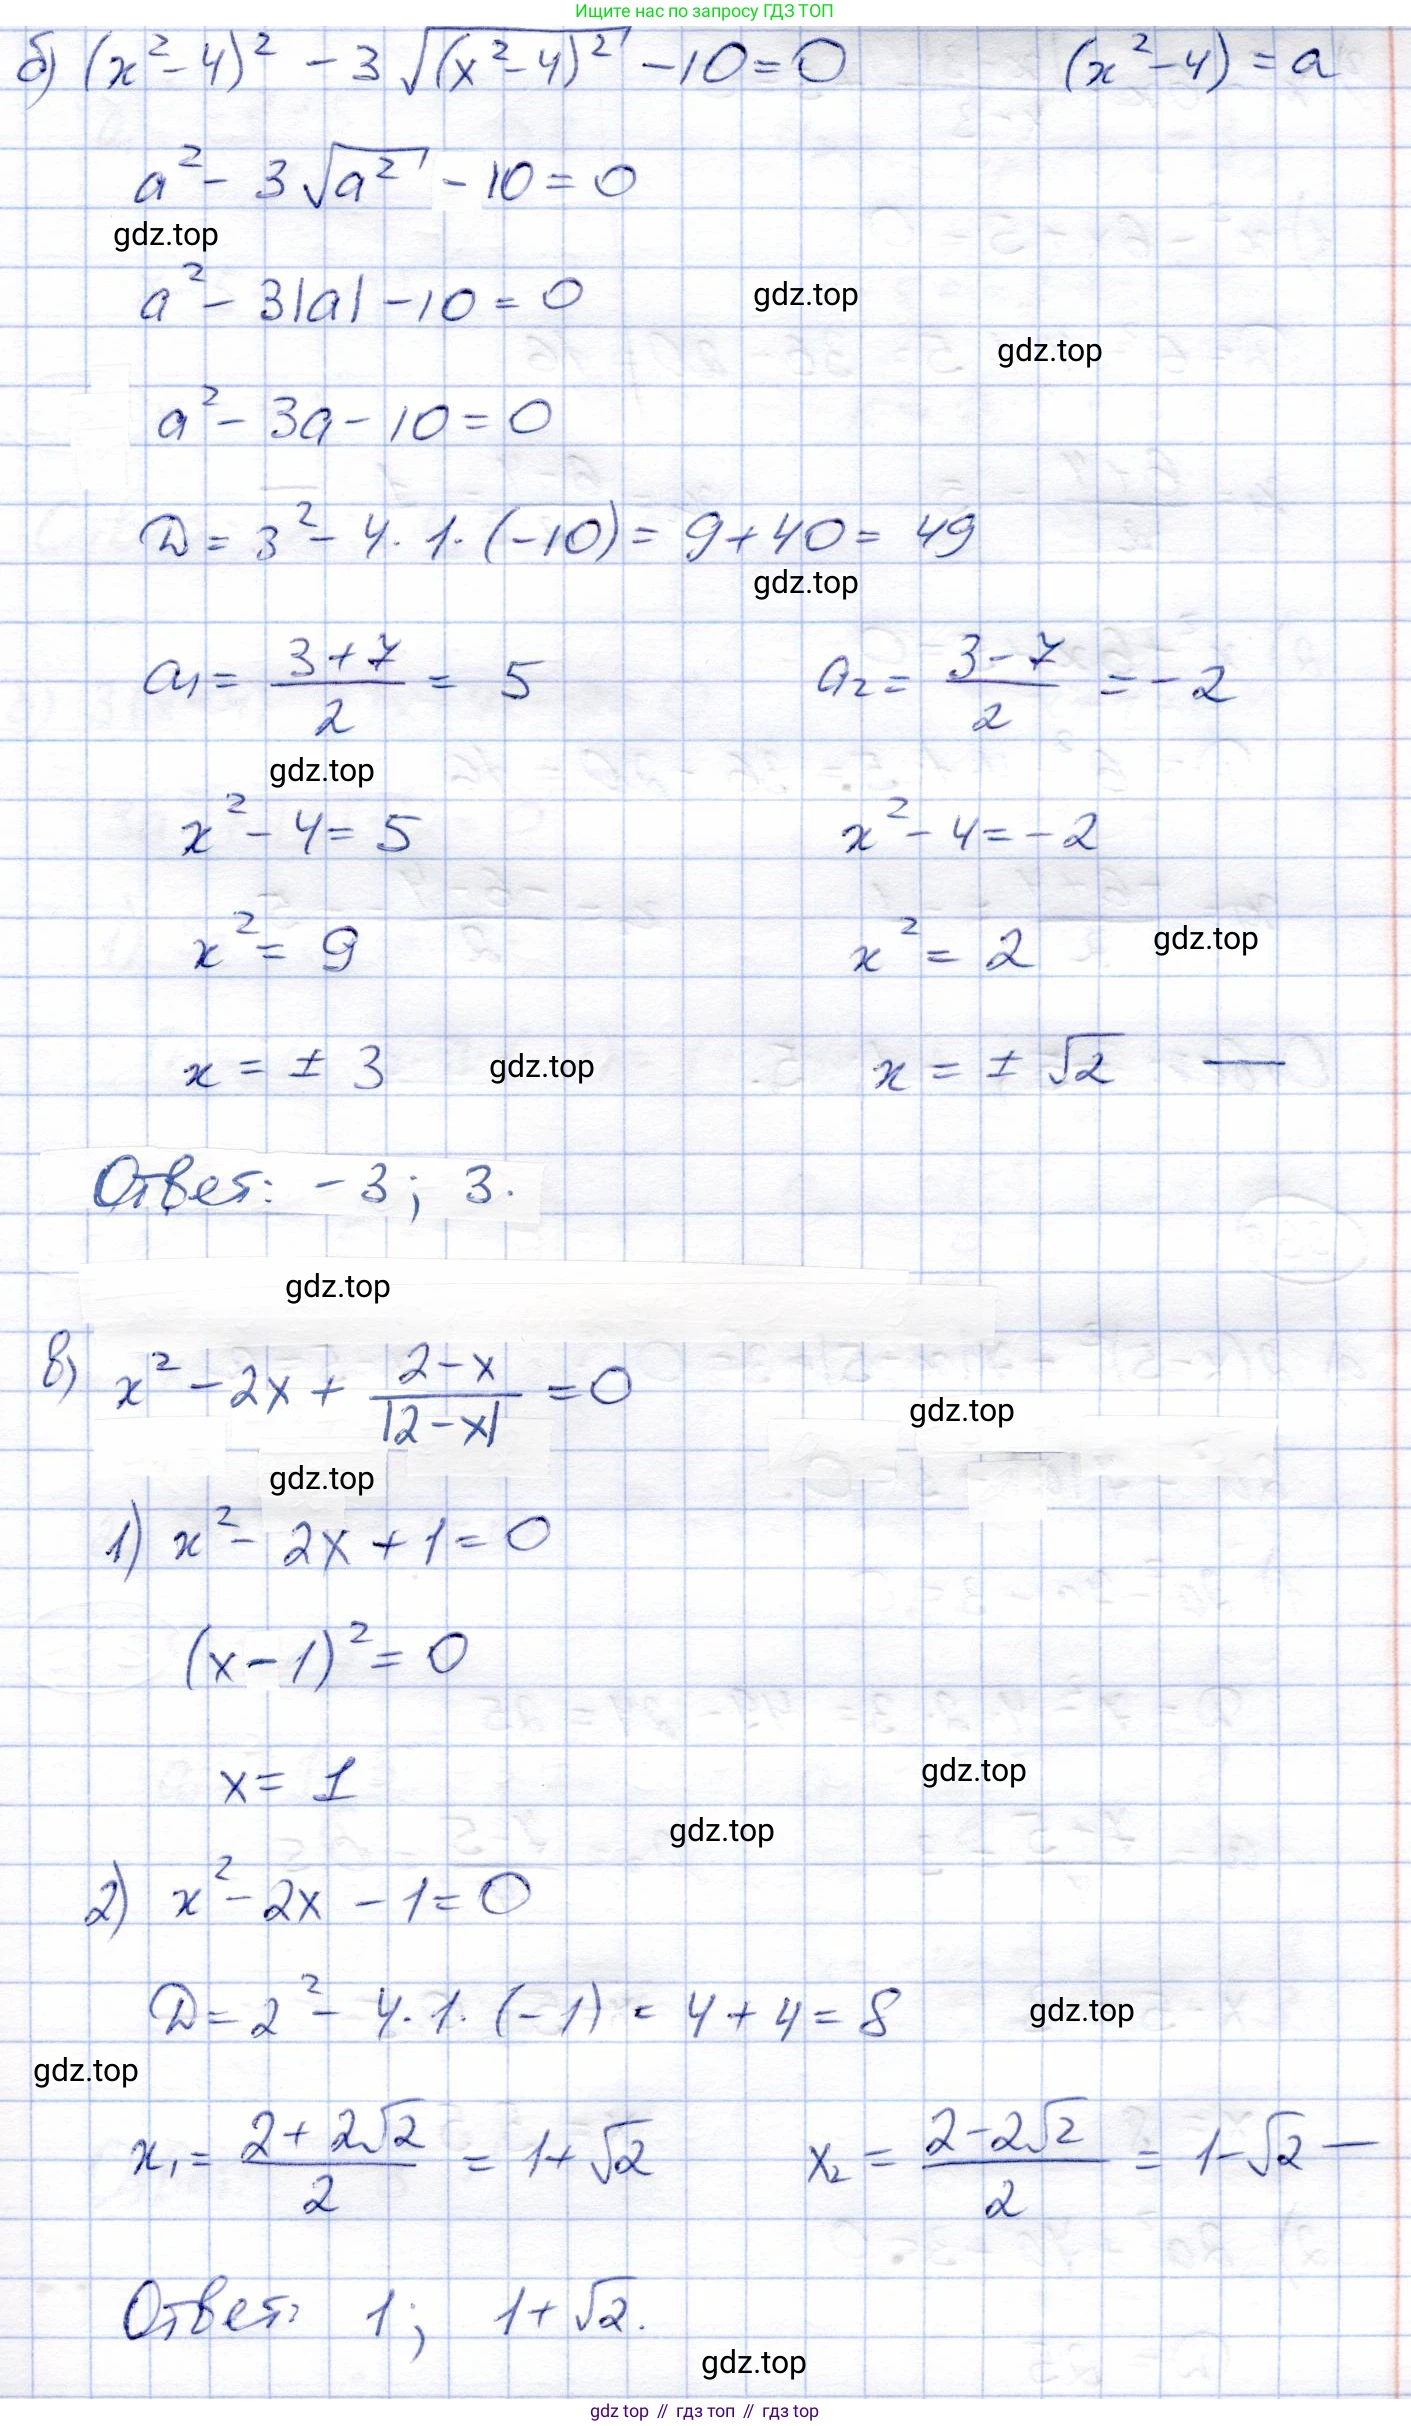 Ищите нас по запросу ГДЗ ТОП
б) (x² - 4)² - 3√(x² - 4)² - 10 = 0 (x² - 4) = a
a² - 3√a² - 10 = 0
gdz.top
a² - 3|a| - 10 = 0 gdz.top
gdz.top
a² - 3a - 10 = 0
D = 3² - 4 · 1 · (-10) = 9 + 40 = 49
gdz.top
a₁ = (3 + 7)/2 = 5 a₂ = (3 - 7)/2 = -2
gdz.top
x² - 4 = 5 x² - 4 = -2
x² = 9 x² = 2 gdz.top
x = ± 3 gdz.top x = ± √2 —
Ответ: -3; 3.
gdz.top
в) x² - 2x + (2 - x)/|2 - x| = 0
gdz.top
gdz.top
1) x² - 2x + 1 = 0
(x - 1)² = 0
x = 1 gdz.top
gdz.top
2) x² - 2x - 1 = 0
D = 2² - 4 · 1 · (-1) = 4 + 4 = 8 gdz.top
gdz.top
x₁ = (2 + 2√2)/2 = 1 + √2 x₂ = (2 - 2√2)/2 = 1 - √2 —
Ответ: 1; 1 + √2.
gdz.top
gdz top // гдз топ // gdz top